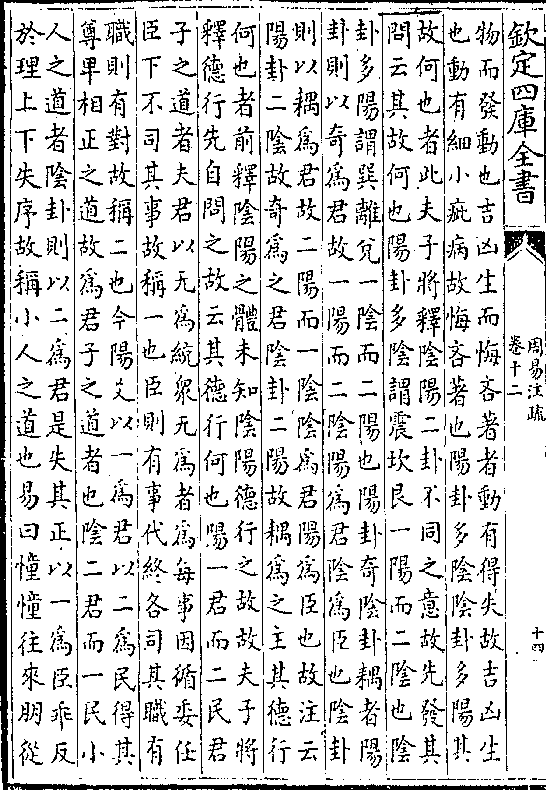 欽定四庫全書
周易注疏
卷十二
十四
物而發動也吉凶生而悔吝著者動有得失故吉凶生
也動有細小疵病故悔吝著也陽卦多陰陰卦多陽其
故何也者此夫子將釋陰陽二卦不同之意故先發其
問云其故何也陽卦多陰謂震坎艮一陽而二陰也陰
卦多陽謂巽離兌一陰而二陽也陽卦奇陰卦耦者陽
卦則以奇為君故一陽而二陰陽為君陰為臣也陰卦
則以耦為君故二陽而一陰陰為君陽為臣也故注云
陽卦二陰故奇為之君陰卦二陽故耦為之主其德行
何也者前釋陰陽之體未知陰陽德行之故故夫子將
釋德行先自問之故云其德行何也陽一君而二民君
子之道者夫君以无為統衆无為者為每事因循委任
臣下不司其事故稱一也臣則有事代終各司其職有
職則有對故稱二也今陽爻以一為君以二為民得其
尊卑相正之道故為君子之道者也陰二君而一民小
人之道者陰卦則以二為君是失其正以一為臣乖反
於理上下失序故稱小人之道也易曰憧憧往來朋從